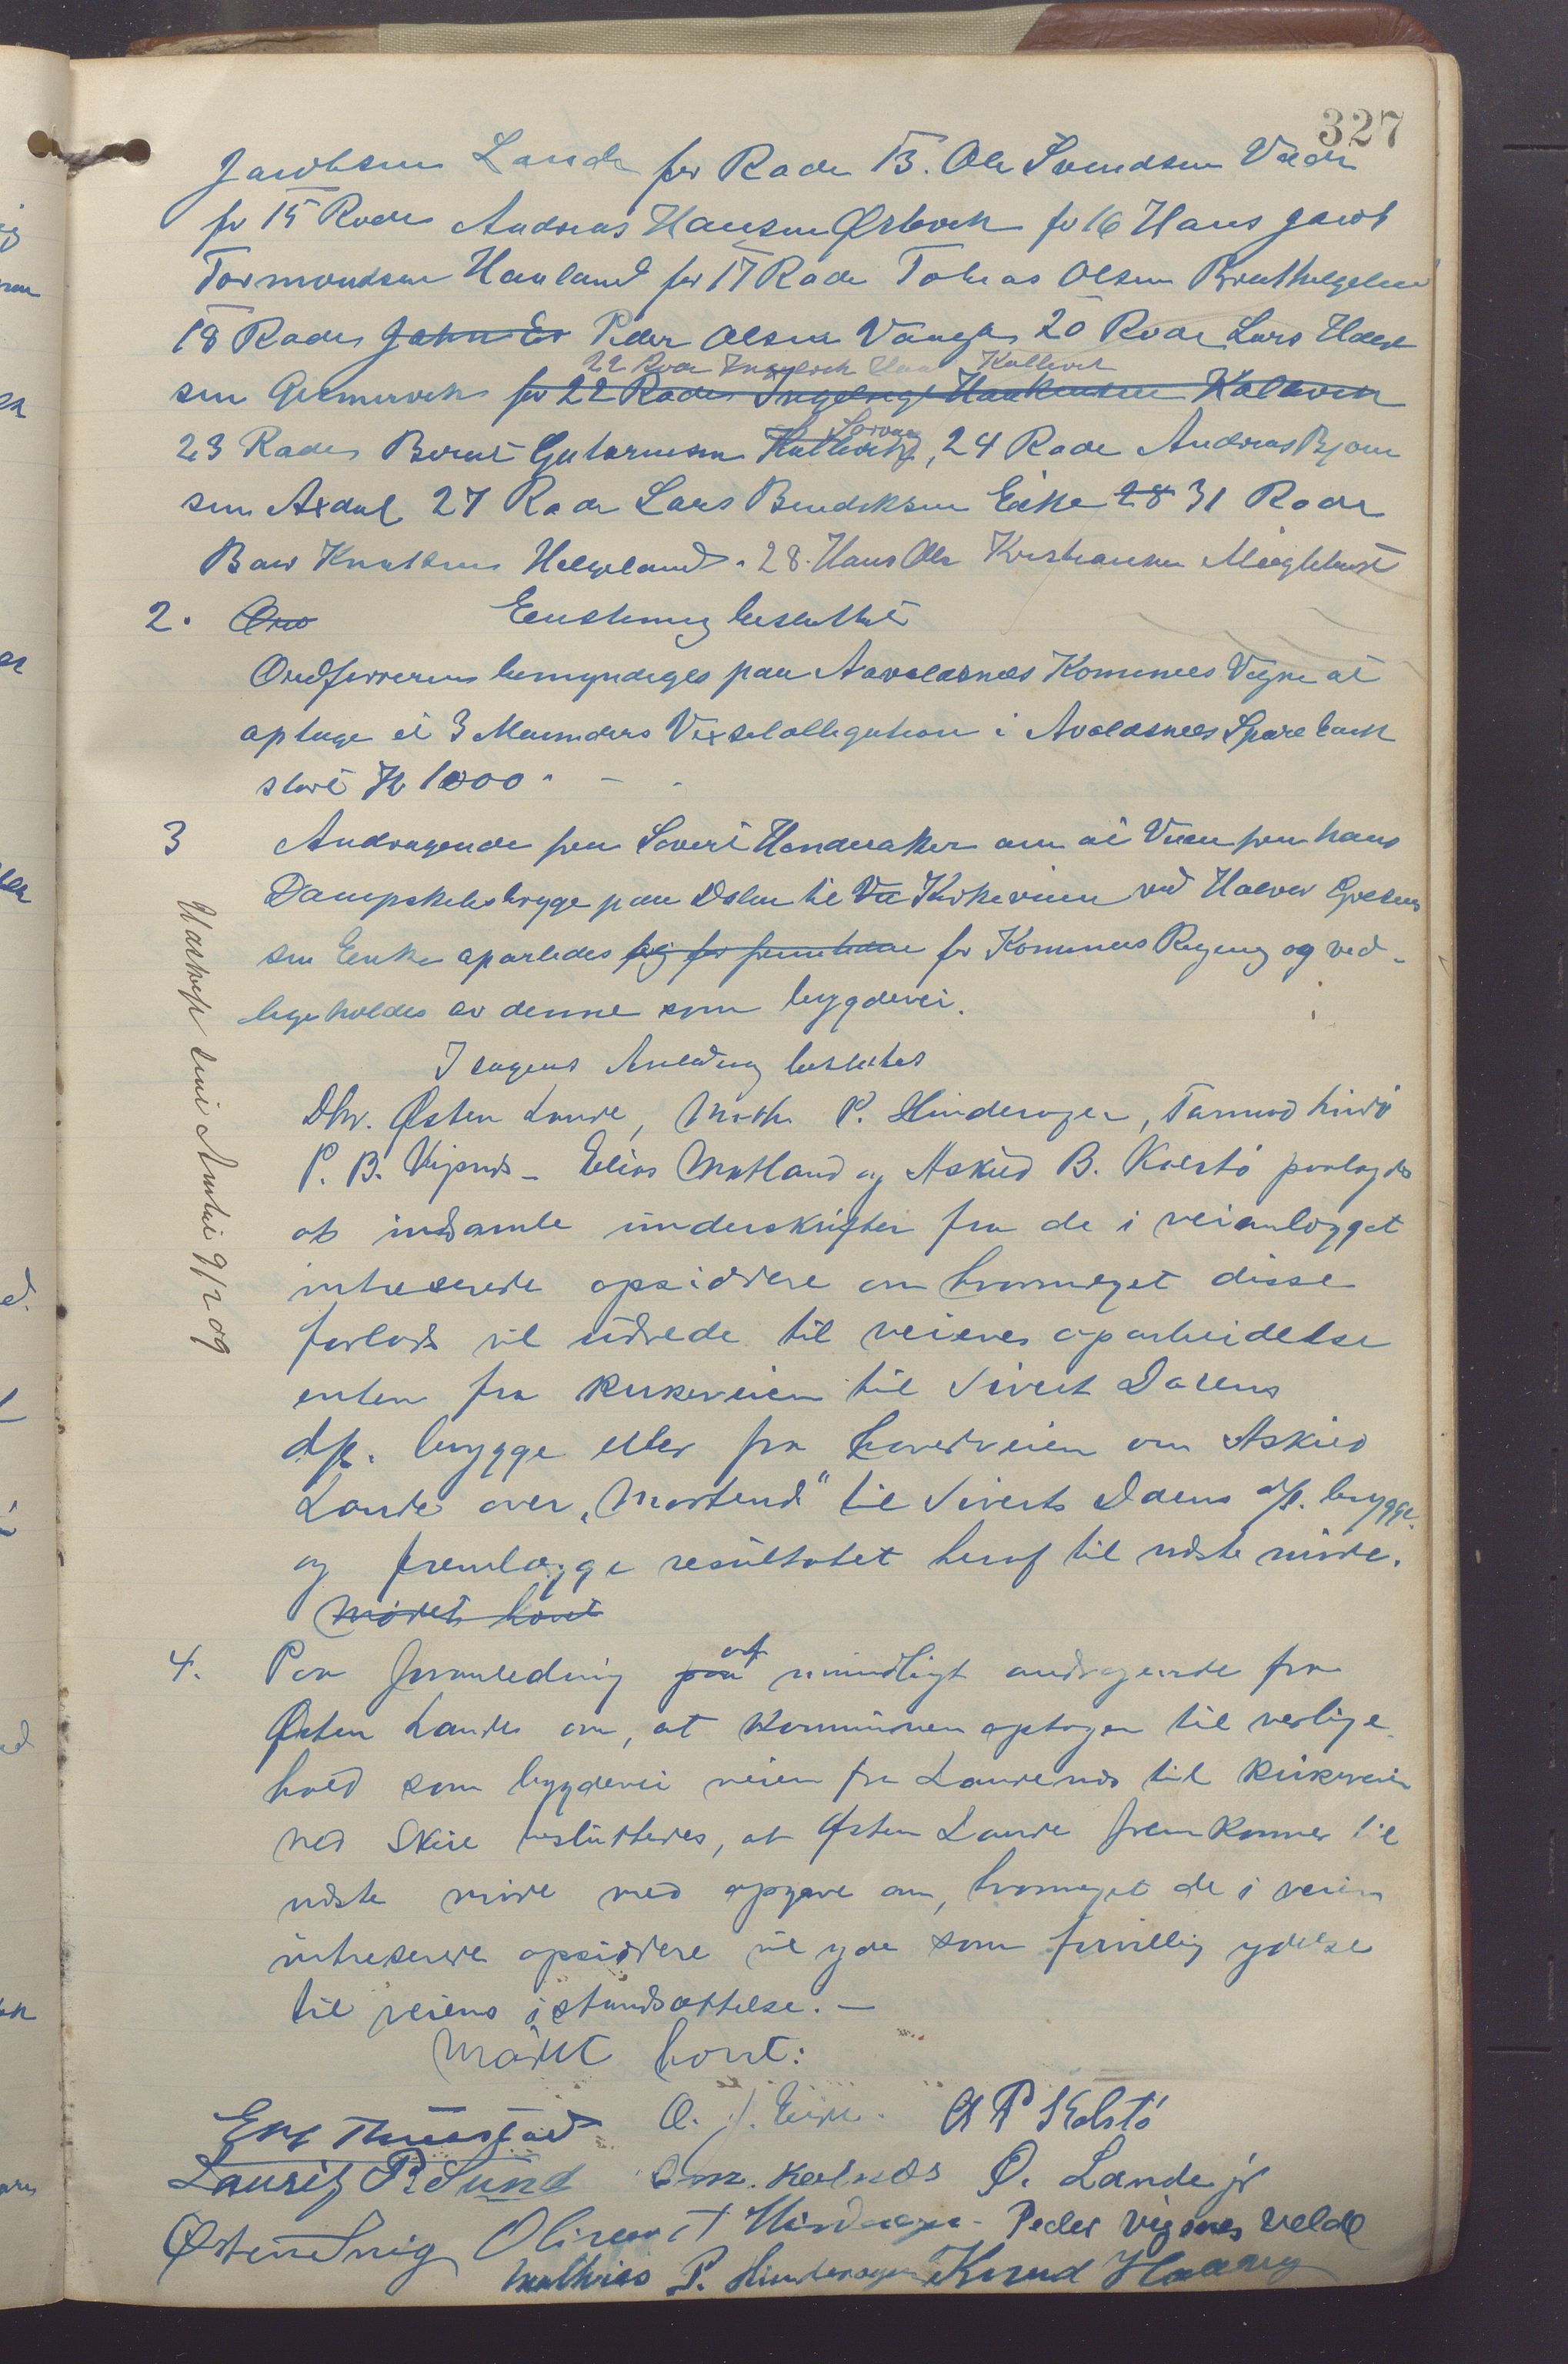 327
Jacobsen Lande for Rode 13. Ole Svendsen Vaede
for 15 Rode Andreas Hansen Ørbech for 16 Hans Jacob
Tormondsen Hauland for 17 Rode Tobias Olsen Bratthelgeland
18 Rode John Peder Olsen Vaage 20 Rode Lars
22 Rode Kallevik
sen for 22 Rode Haakensen Kallevik
23 Rode Berent Gutormsen, 24 Rode Andreas Bjørn
sen Axdal 27 Rode Lars Bendiksen Eike 28 31 Rode
Knutsen Helgeland. 28. Hans Ole Kristiansen
2. Ord Eenstemig besluttet
Ordføreren bemyndiges paa Avaldsnes Kommunes Vegne at
optage et 3 Maaneders Vexelobligation i Avaldsnes Sparebank
stort Kr 1000.
3 Andragende fra Sivert Hinderaker om at Veien fra hans
Dampskibsbrygge paa Dalen til Vei Kirkeveien ved
sen Enke oparbeides for Kommunens Regning og ved-
ligeholdes av denne som bygdevei.
I sagens Anledning besluttes
Dhr. Østen Lande, Math. P. Hinderager, Tormod
P. B. Vigsnes - Elias Matland og Askild B. Kolstø paalagdes
at indsamle underskrifter fra de i veianlægget
intreserede opsiddere om hvormeget disse
forlods vil udrede til veienes oparbeidelse
enten fra kirkeveien til Sivert Dalens
dsk. brygge eller fra hovedveien om Askild
Lande over "Mortend" til Siverts Dalens dsk. brygge.
og fremlægge resultatet heraf til næste møde.
Mødet hævet
4. Paa foranledning paa af mundtligt andragende fra
Østen Lande om, at kommunen optager til vedlige
hold som bygdevei veien fra Landenes til kirkeveien
ved Skeie besluttedes, at Østen Lande fremkommer til
næste møde med opgave om, hvormeget de i veien
intreserede opsiddere vil yde som frivillig ydelse
til veiens istandsættelse. —
Mødet hævet:
O. J. Eide. A P Kolstø
Laurits P. Sund O. Lande jr
Peder Vigsnes Velde
Mathias P. Hinderager Knud
Udskrift sent Amtet 9/2 09